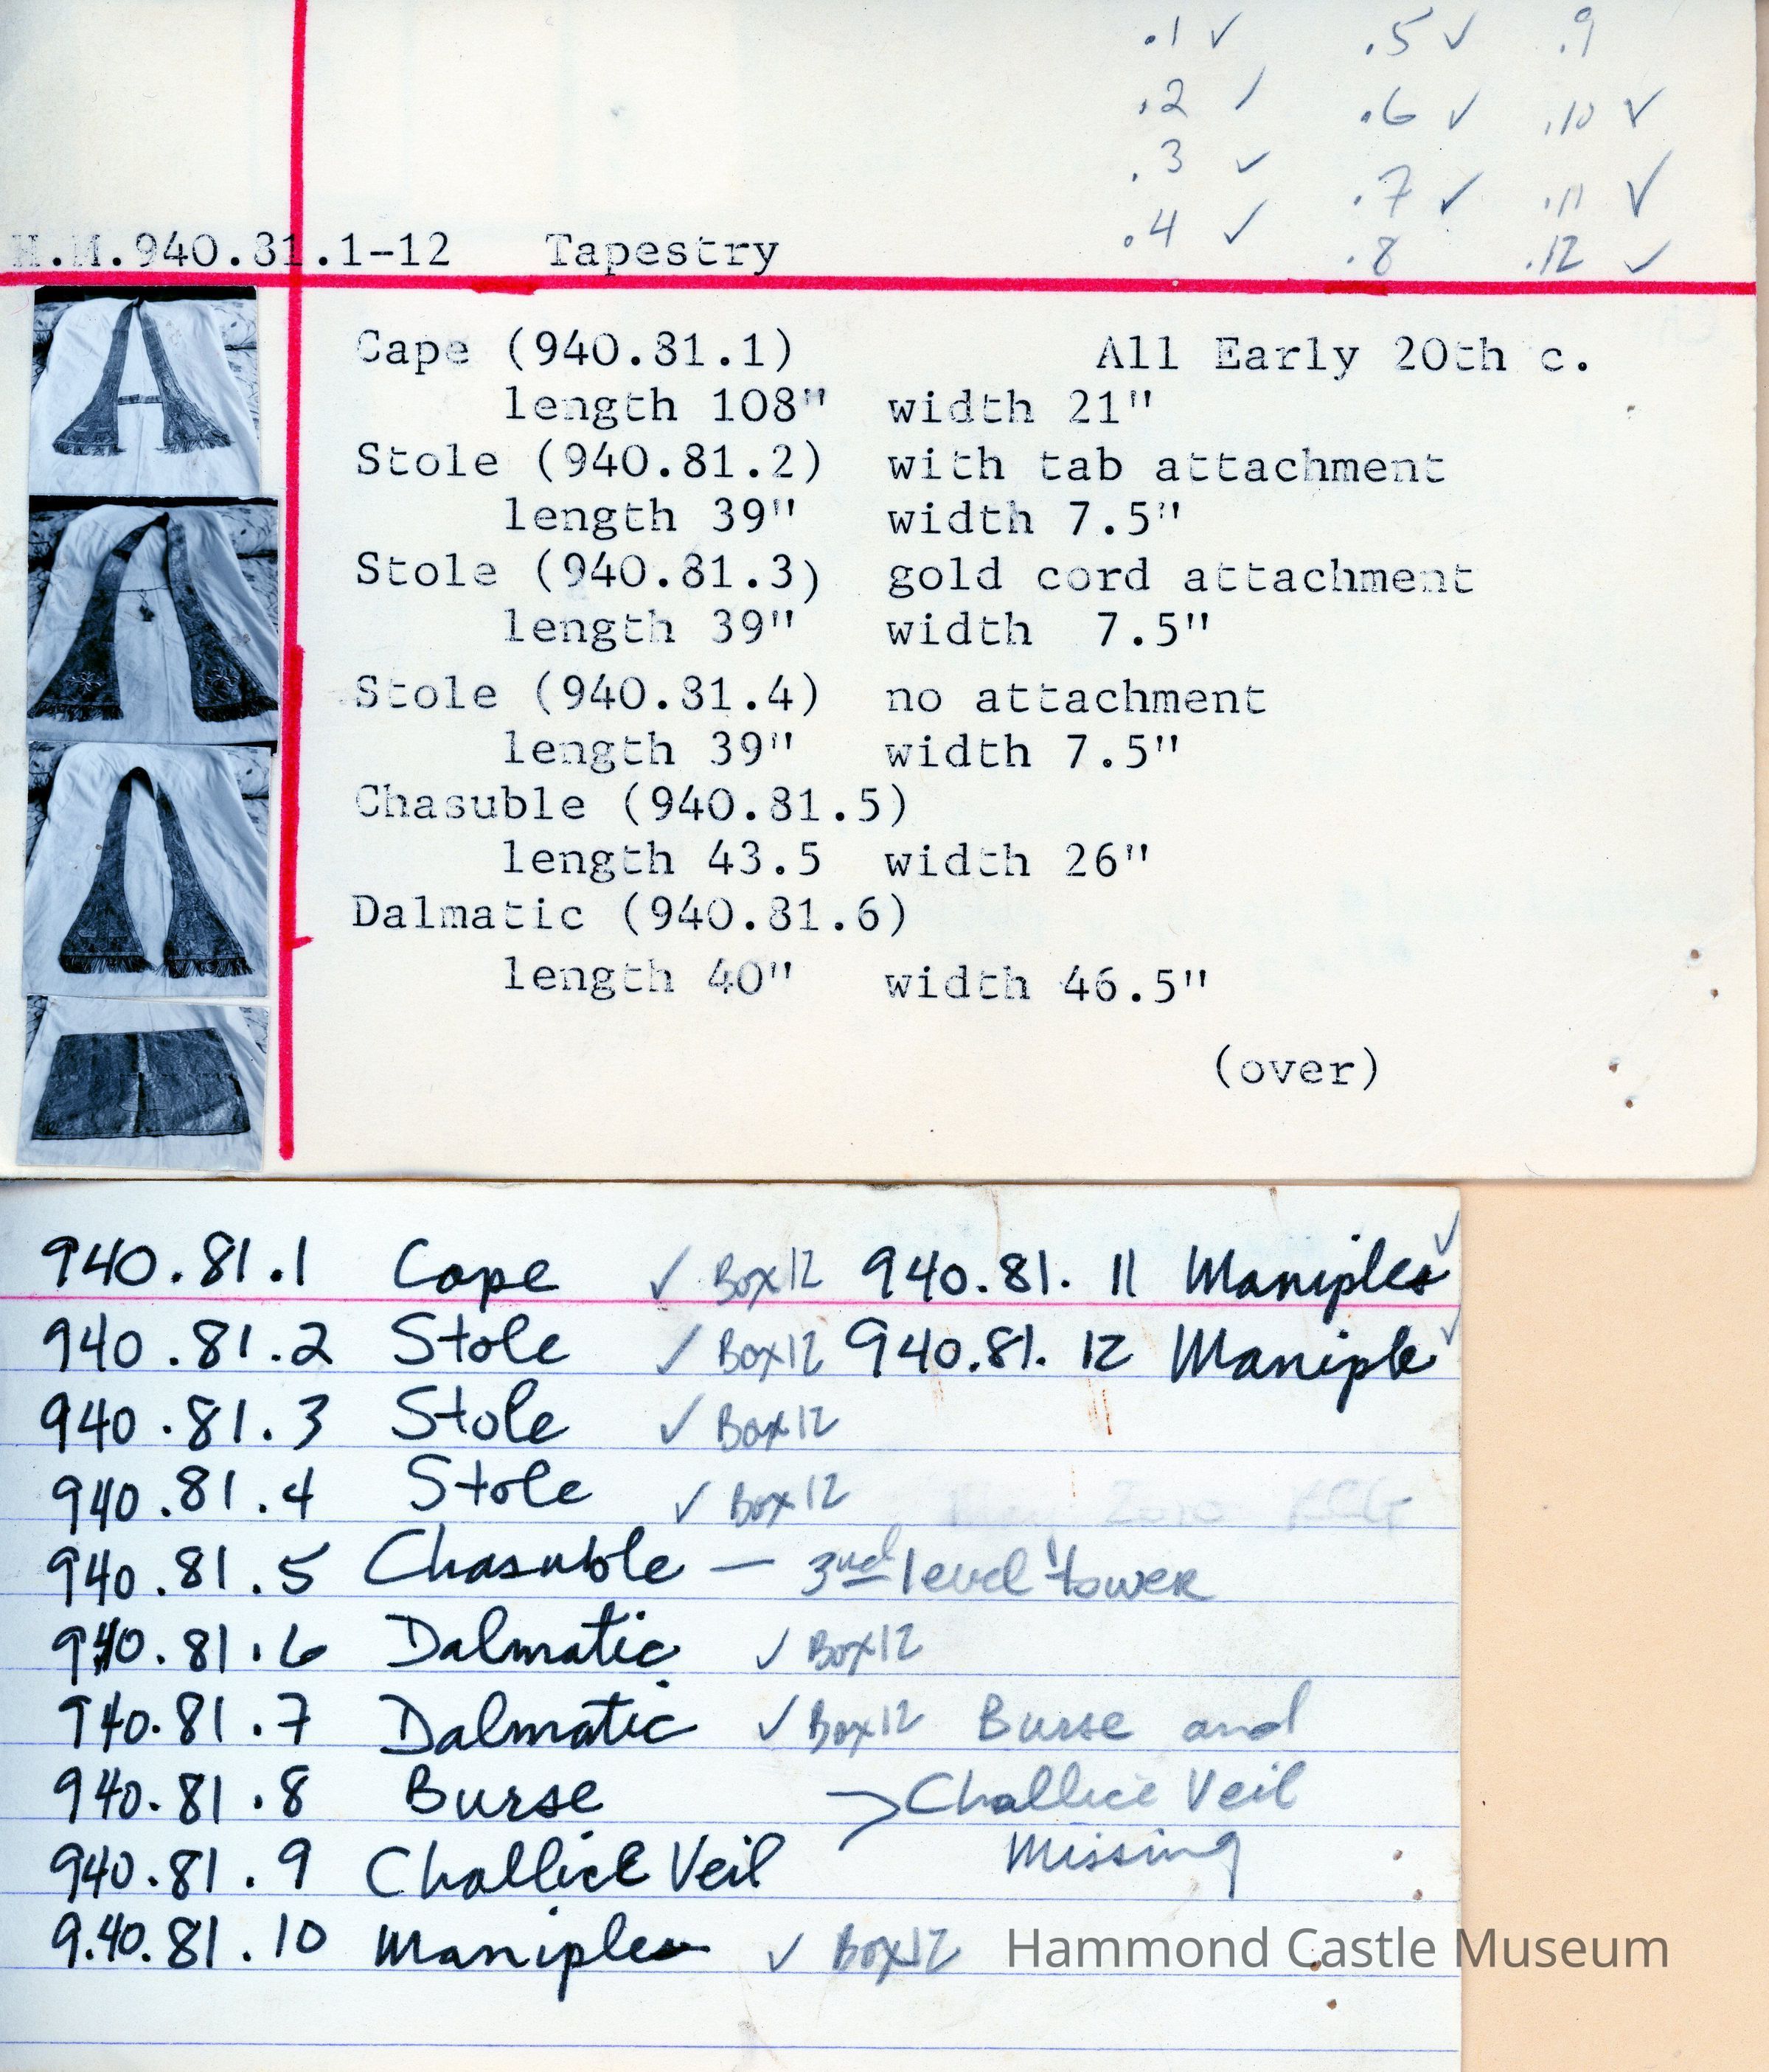 .1 ✓ .5 ✓ .9
.2 ✓ .6 ✓ .10 ✓
.3 ✓ .7 ✓ .11 ✓
.4 ✓ .8 .12 ✓
H.M.940.81.1-12 Tapestry
Cape (940.81.1) All Early 20th c.
length 108" width 21"
Stole (940.81.2) with tab attachment
length 39" width 7.5"
Stole (940.81.3) gold cord attachment
length 39" width 7.5"
Stole (940.81.4) no attachment
length 39" width 7.5"
Chasuble (940.81.5)
length 43.5 width 26"
Dalmatic (940.81.6)
length 40" width 46.5"
(over)
940.81.1 Cape ✓ Box 12 940.81.11 Maniples ✓
940.81.2 Stole ✓ Box 12 940.81.12 Maniple ✓
940.81.3 Stole ✓ Box 12
940.81.4 Stole ✓ Box 12
940.81.5 Chasuble — 3rd level tower
940.81.6 Dalmatic ✓ Box 12
940.81.7 Dalmatic ✓ Box 12 Burse and
940.81.8 Burse > Challice Veil
940.81.9 Challice Veil Missing
9.40.81.10 Maniples ✓ Box 12
Hammond Castle Museum